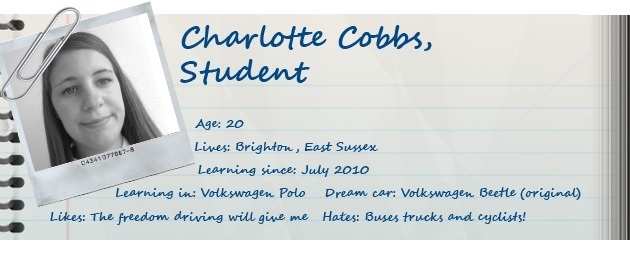 Charlotte Cobbs,
Student
04341077867-8
Age: 20
Lives: Brighton, East Sussex
Learning since: July 2010
Learning in: Volkswagen Polo Dream car: Volkswagen Beetle (original)
Likes: The freedom driving will give me Hates: Buses trucks and cyclists!